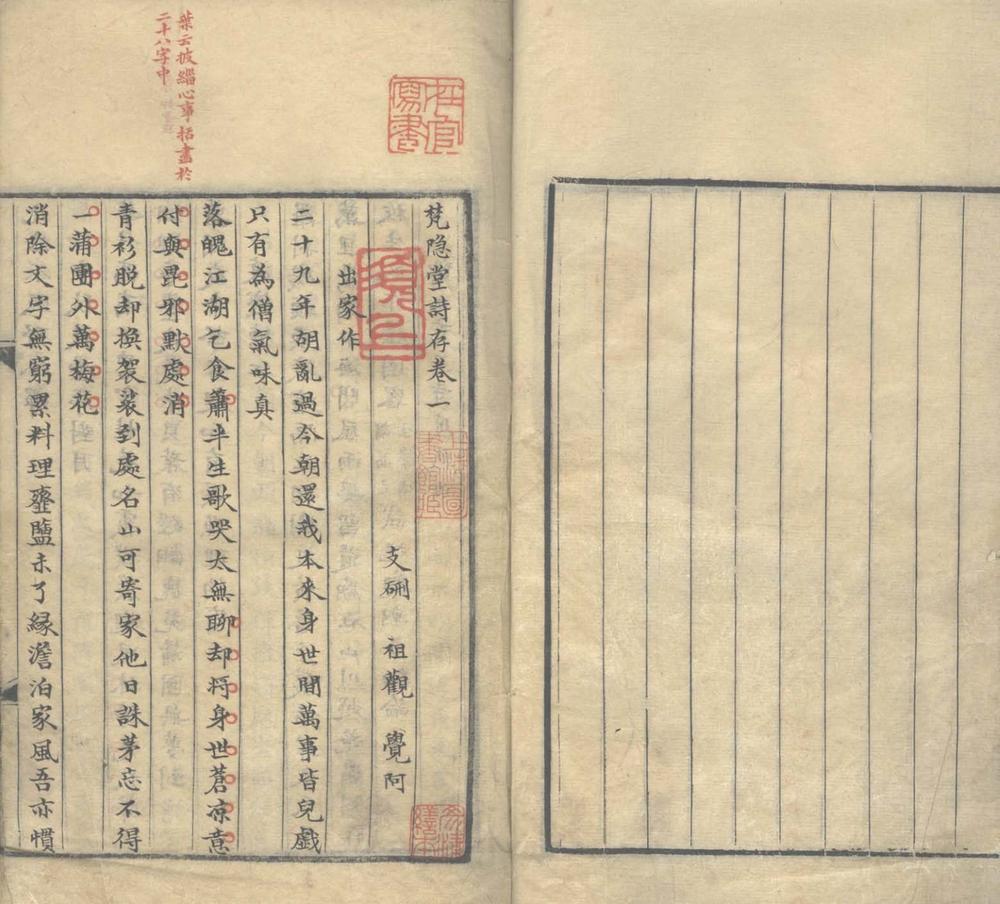 葉云披緇心事括盡於
二十八字中
在官
寫書
梵隐堂詩存卷一
支硎 祖觀 覺阿
出家作
二十九年胡亂過今朝還我本來身世間萬事皆兒戲
只有為僧氣味真
落魄江湖乞食蕭半生歌哭太無聊却将身世蒼凉意
付與毘邪默處消
青衫脱却換袈裟到處名山可寄家他日誅茅忘不得
一蒲團外萬梅花
消除文字無窮累料理虀鹽未了緣澹泊家風吾亦慣